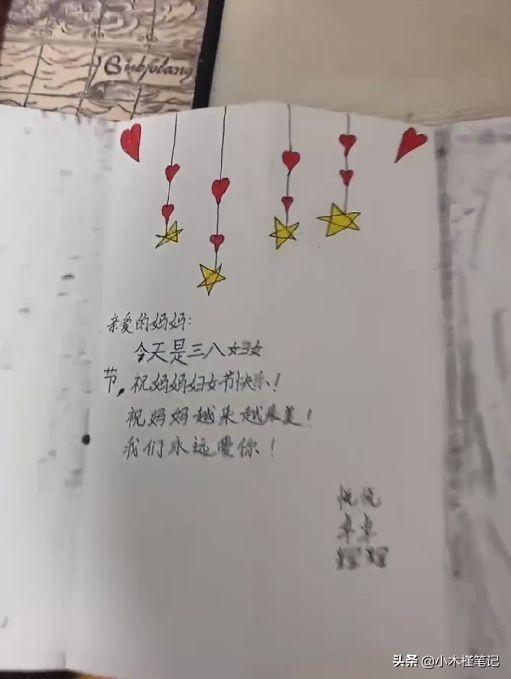 Subplang
亲爱的妈妈:
今天是三八妇女
节,祝妈妈妇女节快乐!
祝妈妈越来越来美!
我们永远爱你!
悦悦
卓卓
头条 @小木槿笔记